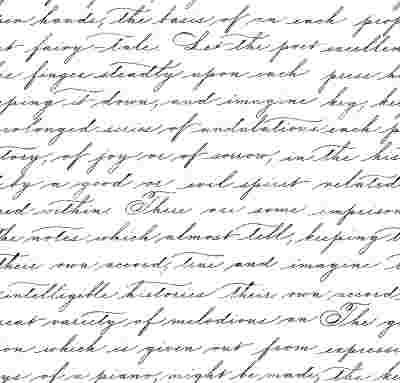 hands, the basis of in each
fairy tale. Let the poet excellent
finger steadily upon each press
it down, and imagine key,
prolonged series of undulations each
of joy or of sorrow, in the
by a good or evil spirit related
within. These are some
the notes which almost tell, keeping
their own accord, true and imagine
intelligible histories their own accord,
variety of melodious an The
on which is given out from
of a piano, might be made, the